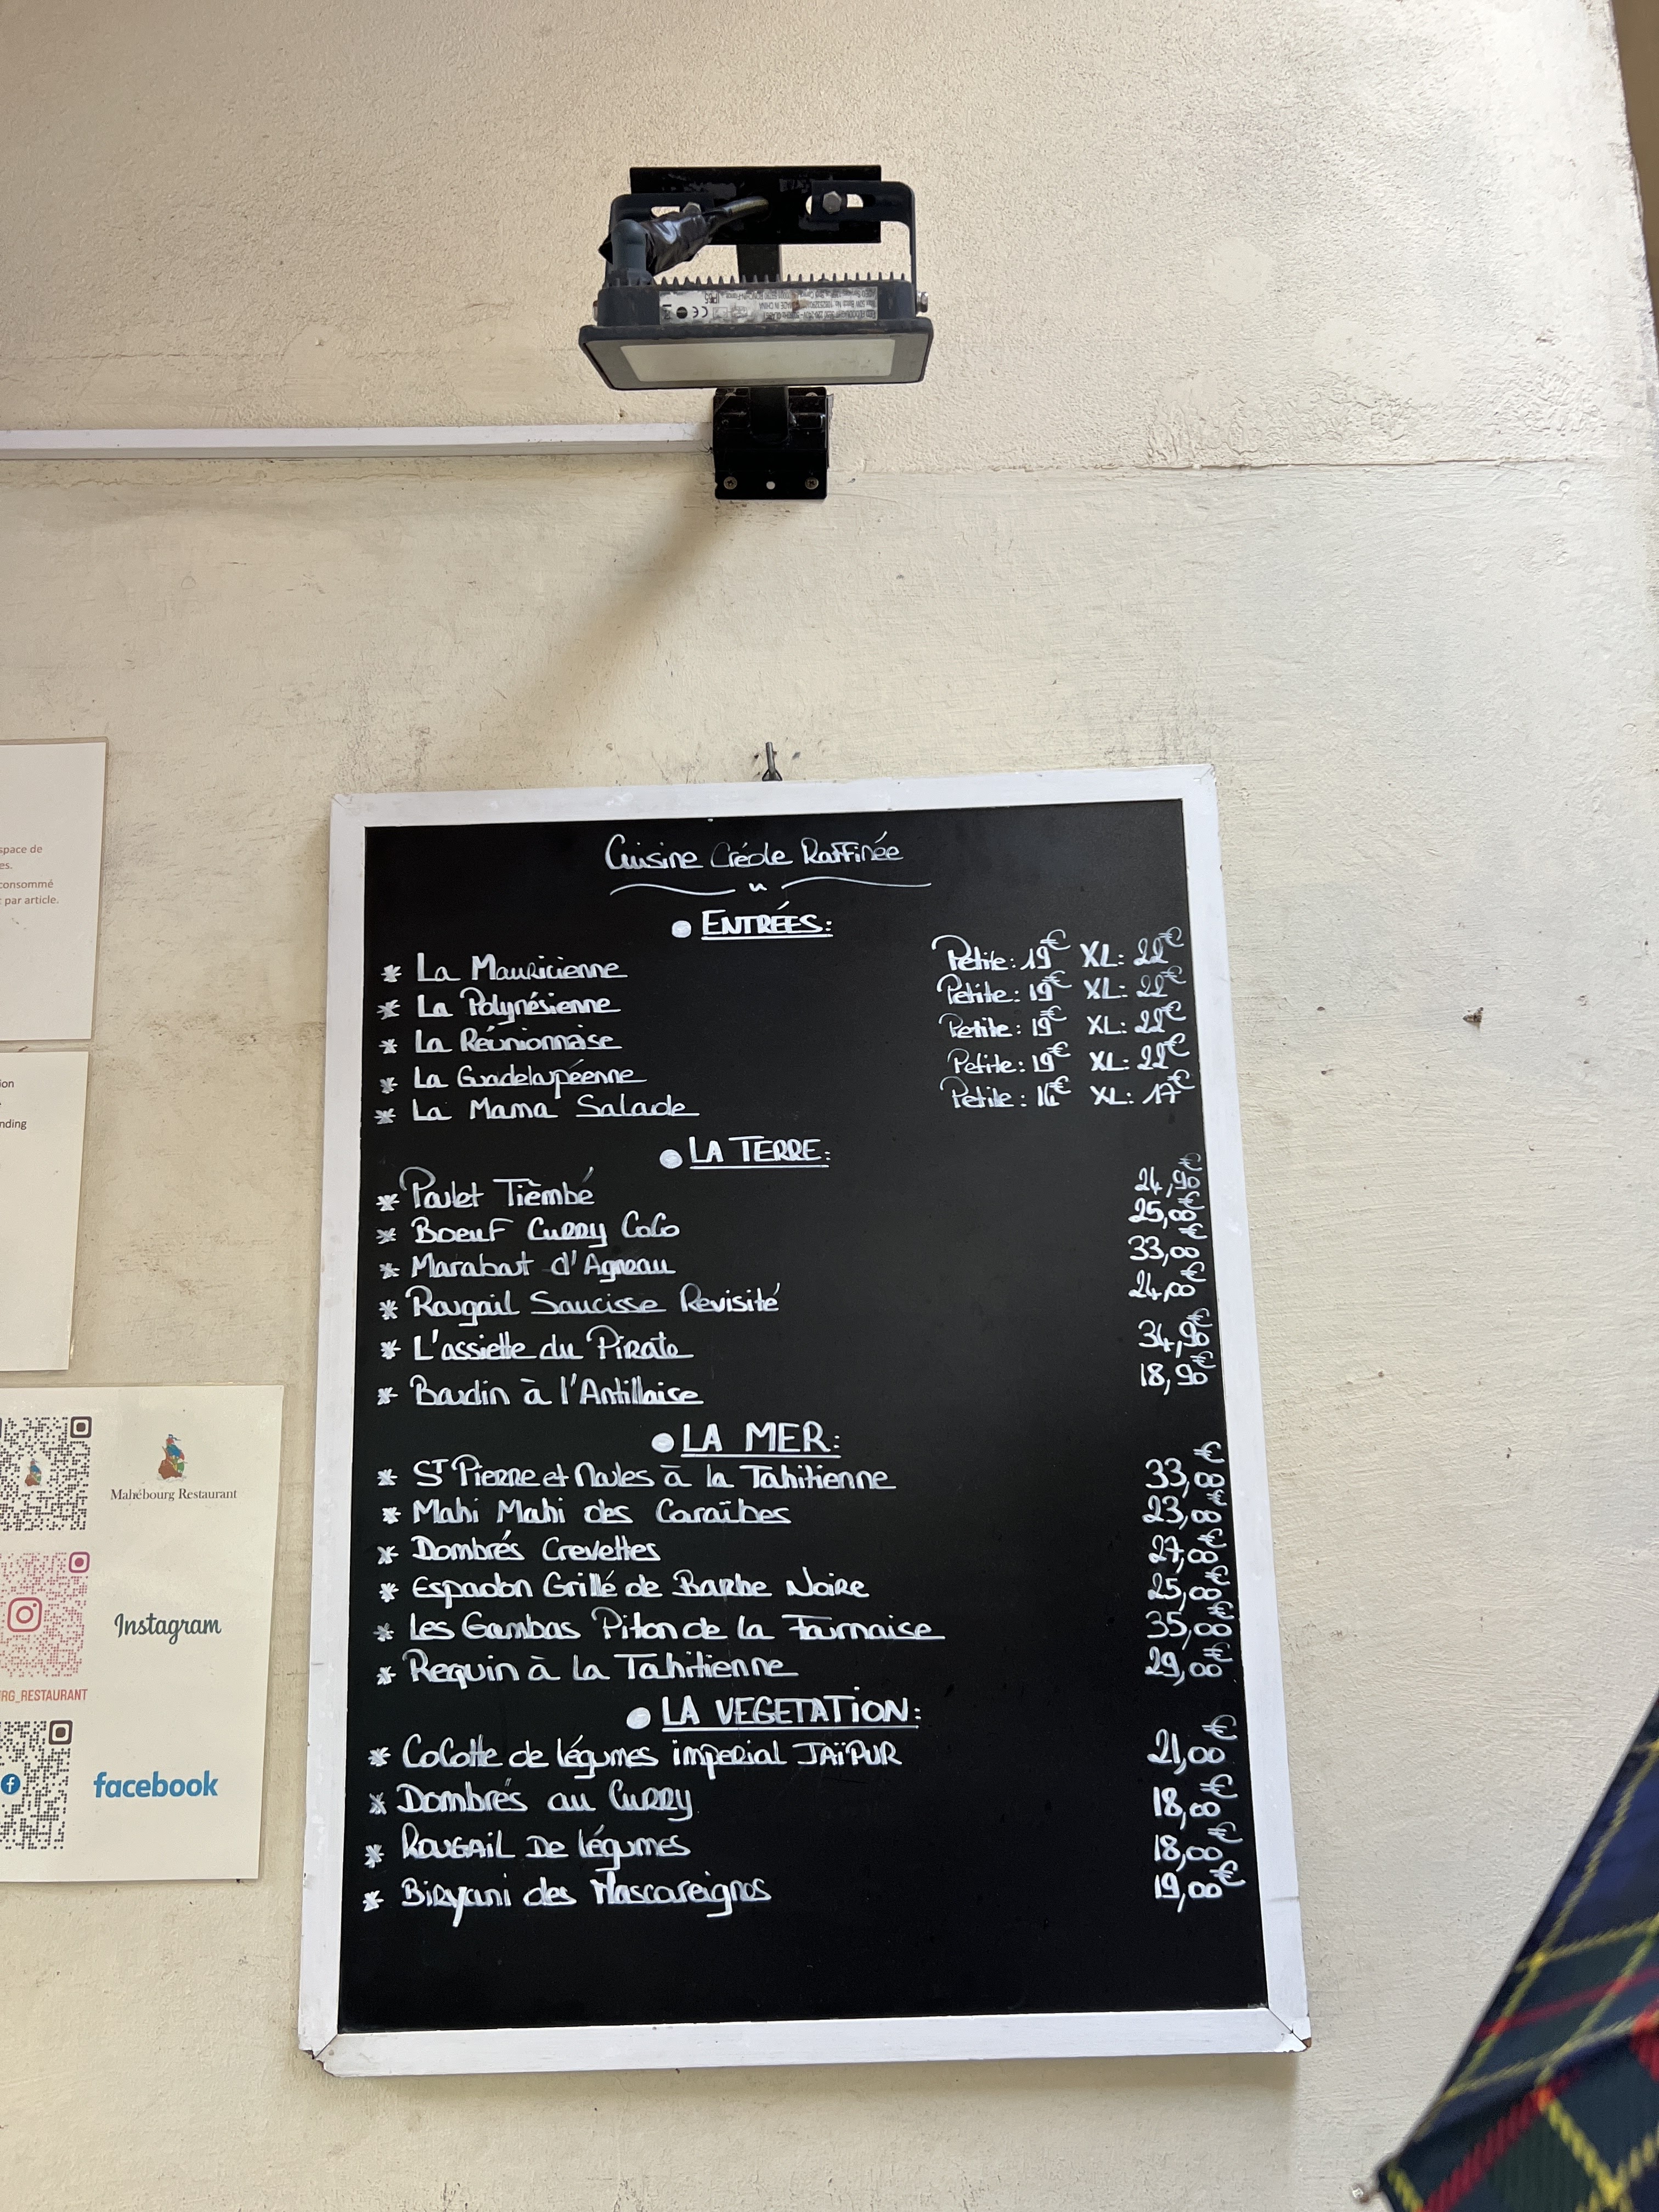 Cuisine Créole Raffinée
• ENTRÉES:
* La Mauricienne Petite: 19€ XL: 22€
* La Polynésienne Petite: 19€ XL: 22€
* La Réunionnaise Petite: 19€ XL: 22€
* La Guadeloupéenne Petite: 19€ XL: 22€
* La Mama Salade Petite: 16€ XL: 17€
• LA TERRE:
* Poulet Tièmbé 24,90€
* Boeuf Curry CoCo 25,00€
* Marabout d'Agneau 33,00€
* Rougail Saucisse Revisité 24,00€
* L'assiette du Pirate 34,90€
* Boudin à l'Antillaise 18,90€
• LA MER:
* ST Pierre et Moules à la Tahitienne 33,00€
* Mahi Mahi des Caraïbes 23,00€
* Dombrés Crevettes 27,00€
* Espadon Grillé de Barbe Noire 25,00€
* Les Gambas Piton de la Fournaise 35,00€
* Requin à la Tahitienne 29,00€
• LA VEGETATION:
* CoCotte de légumes imperial JAÏPUR 21,00€
* Dombrés au Curry 18,00€
* ROUGAIL De légumes 18,00€
* Biryani des Mascareignes 19,00€
space de
es.
consommé
par article.
ion
nding
Mahébourg Restaurant
Instagram
RG_RESTAURANT
facebook
IP65
CE